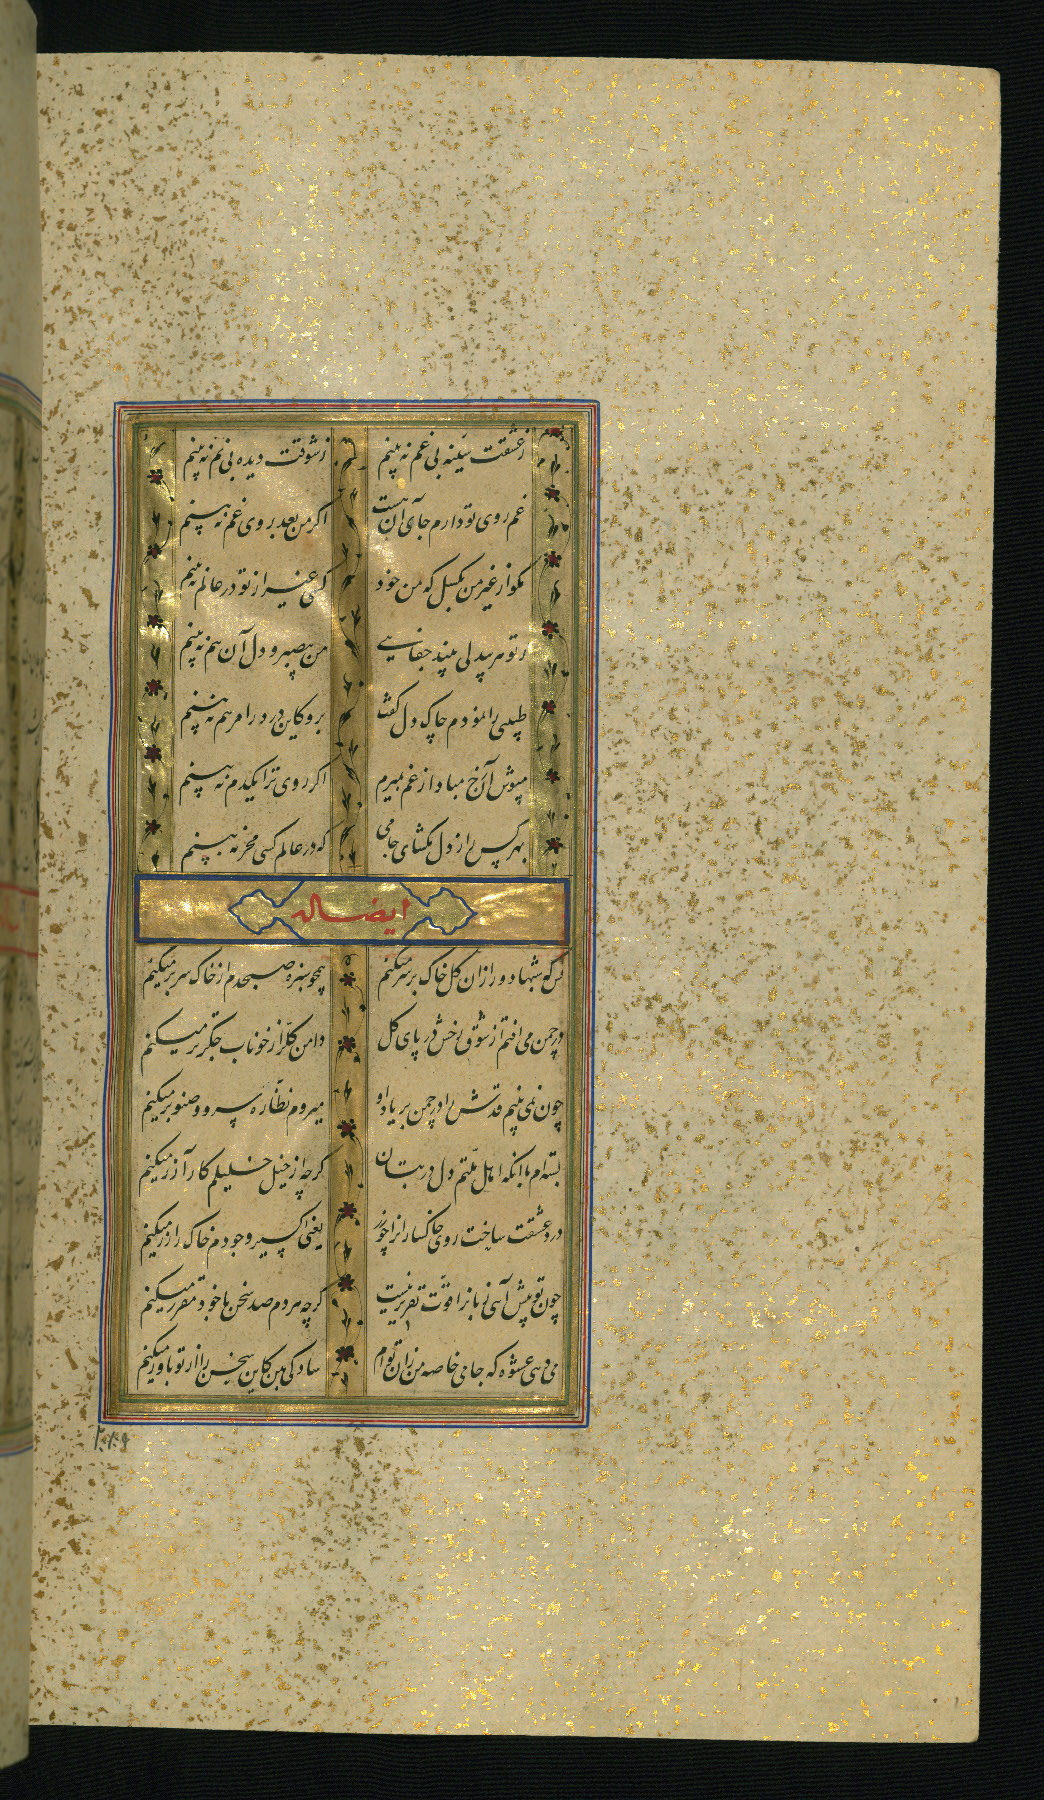 ز عشقت سینه بی غم نه بینم ز شوقت دیده بی نم نه بینم
غم روی تو دارم جای آن هست اگر من بعد روی غم نه بینم
مگو از غیر من بگسل که من خود کسی غیر از تو در عالم نه بینم
ز تو هر بیدلی بیند جفایی من بیصبر و دل آن هم نه بینم
طبیبی را نمودم چاک دل گفت برو کاین درد را مرهم نه بینم
مپوش آن رخ مبادا از غم بمیرم اگر روی ترا یکدم نه بینم
بهر کس راز دل مگشای جامی که در عالم کسی محرم نه بینم
ایضا له
بس که شبها دور از آن گل خاک بر سر میکنم همچو سبزه صبحدم از خاک سر بر میکنم
در چمن می افتم از شوق رخش در پای گل دامن گل را ز خوناب جگر تر میکنم
چون نمی بینم قدش را در چمن بر یاد او میروم نظاره سرو و صنوبر میکنم
بسته ام با آنکه اهل ملتم دل در بتان گرچه از خیل خلیلم کار آزر میکنم
درد عشقت ساخت روی خاکساران را چو زر یعنی اکسیر وجودم خاک را زر میکنم
چون تو پیش آئی زبانرا قوت تقریر نیست گرچه هر دم صد سخن با خود مقرر میکنم
می دهی عشوه که جامی خاصه من زان توام سادگی بین کاین سخن را از تو باور میکنم